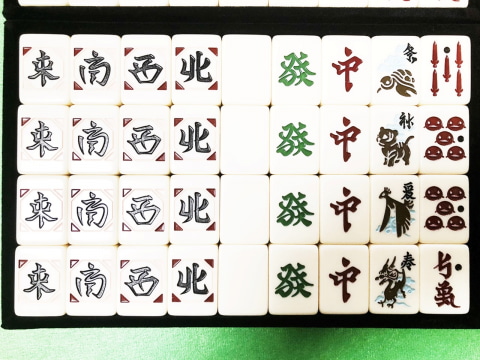 東 南 西 北 發 中 冬
東 南 西 北 發 中 秋
東 南 西 北 發 中 夏
東 南 西 北 發 中 春 五萬